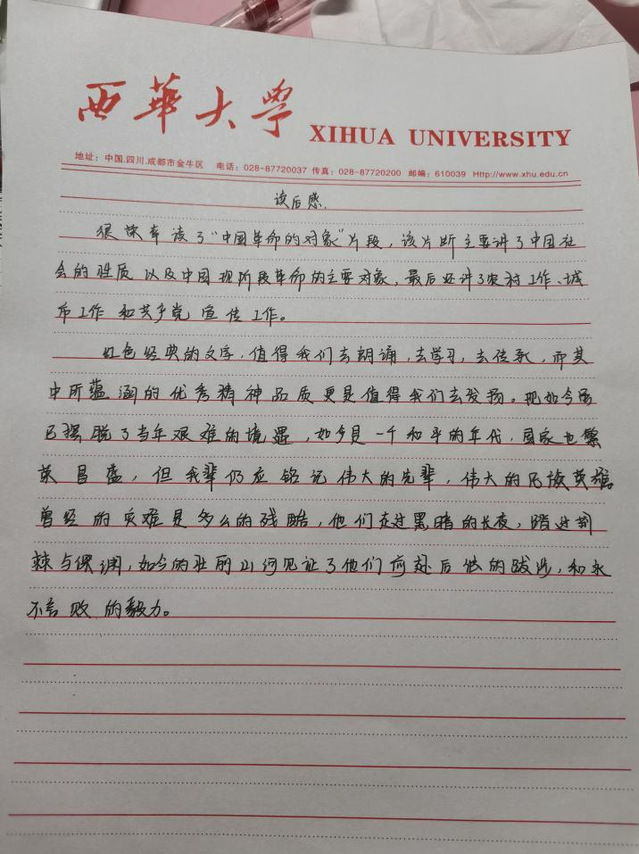 西華大學 XIHUA UNIVERSITY
地址：中国.四川.成都市金牛区 电话：028-87720037 传真：028-87720200 邮编：610039 Http://www.xhu.edu.cn
读后感.
很荣幸读了“中国革命的对象”片段，该片断主要讲了中国社
会的性质以及中国现阶段革命的主要对象，最后还讲了农村工作、城
市工作和共产党宣传工作。
红色经典的文字，值得我们去朗诵，去学习，去传承，而其
中所蕴涵的优秀精神品质更是值得我们去发扬。现如今国
已摆脱了当年艰难的境遇，如今是一个和平的年代，国家也繁
荣昌盛，但我辈仍应铭记伟大的先辈，伟大的民族英雄
曾经的灾难是多么的残酷，他们走过黑暗的长夜，踏过荆
棘与，如今的壮丽山河见证了他们前赴后继的跋涉，和永
不言败的毅力。